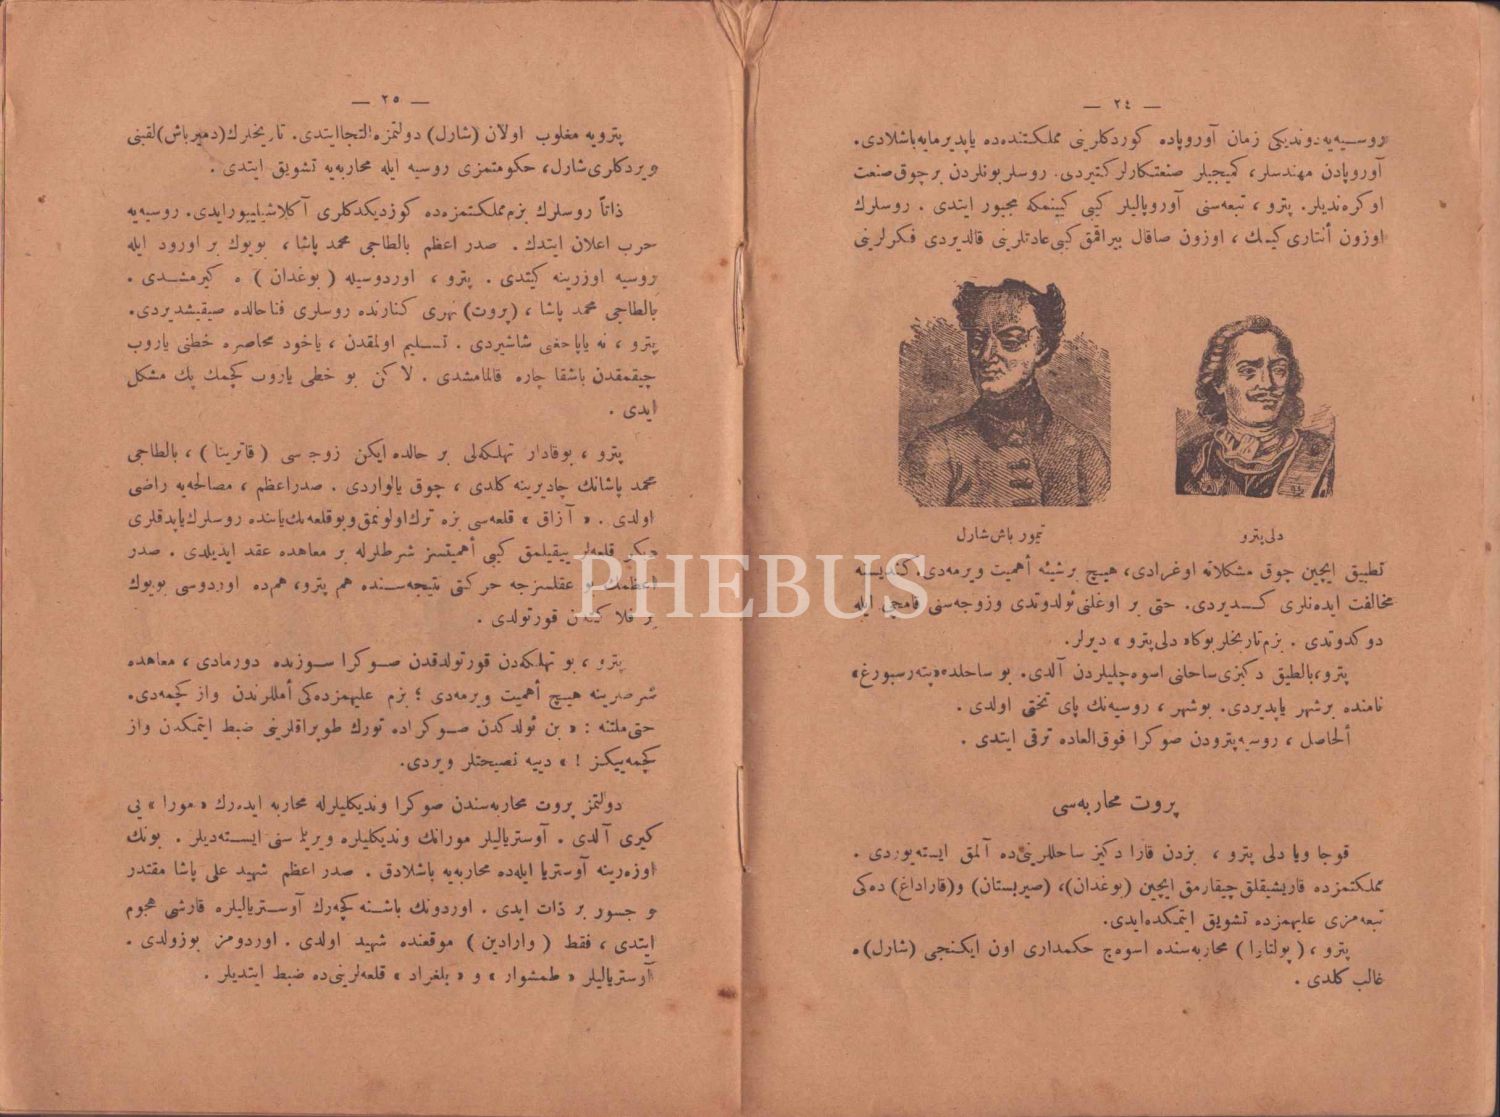 — ٢٤ —
روسـيه‌يه دونديكى زمان آوروپاده كوردكلرينى مملكتنده‌ده ياپديرمايه باشلادى.
آوروپادن مهندسلر، كميجيلر صنعتكارلر كتيردى. روسلر بونلردن بر چوق صنعت
اوكره‌نديلر. پترو ، تبعه‌سنى آوروپاليلر كبى كيينمكه مجبور ايتدى . روسلرك
اوزون أنتارى كيمك ، اوزون صاقال بيراقمق كبى عادتلرينى قالديردى فكرلرينى
دلى پترو
تيمور باش شارل
تطبيق ايچين چوق مشكلاته اوغرادى، هيچ برشيئه أهميت ويرمه‌دى. كنديسنه
مخالفت ايده‌نلرى كـسديردى. حتى بر اوغلنى ئولدوتدى وزوجه‌سنى قامچى ايله
دوكدوتدى . بزم تاريخلر بوكا« دلى پترو » ديرلر.
پترو، بالطيق دكيزى ساحلنى اسوه‌چليلردن آلدى. بو ساحلده «پته‌رسبورغ»
نامنده برشهر ياپديردى. بوشهر ، روسيه‌نك پاى تختى اولدى .
ألحاصل ، روسيه پترودن صوكرا فوق‌العاده ترقى ايتدى .
پروت محاربه‌سى
قوجا ويا دلى پترو ، بزدن قارا دكيز ساحللرينى‌ده آلمق ايسته‌يوردى .
مملكتمزده قاريشيقلق چيقارمق ايچين (بوغدان)، (صيربستان) و(قاراداغ) ده‌كى
تبعه‌مزى عليهمزده تشويق ايتمكده‌ايدى.
پترو ، ( پولتاوا ) محاربه‌سنده اسوه‌ج حكمدارى اون ايكنجى (شارل) ه
غالب كلدى .
— ٢٥ —
پترويه مغلوب اولان (شارل) دولتمزه التجا ايتدى. تاريخلرك (دميرباش) لقبنى
ويردكلرى شارل، حكومتمزى روسيه ايله محاربه‌يه تشويق ايتدى .
ذاتاً روسلرك بزم مملكتمزه‌ده كوزديكدكلرى آكلاشيليور‌ايدى. روسيه‌يه
حرب اعلان ايتدك . صدر اعظم بالطاجى محمد پاشا ، بويوك بر اوردو ايله
روسيه اوزرينه كيتدى . پترو ، اوردوسيله ( بوغدان ) ه كيرمشـدى .
بالطاجى محمد پاشا ، (پروت) نهرى كنارنده روسلرى فناحالده صيقيشديردى.
پترو ، نه ياپاجغنى شاشيردى . تـسليم اولمقدن ، ياخود محاصره خطنى ياروب
چيقمقدن باشقا چاره قالمامشدى . لاكن بو خطى ياروب كچمك پك مشكل
ايدى .
پترو ، بوقادار تهلكه‌لى بر حالده ايكن زوجه سى ( قاترينا ) ، بالطاجى
محمد پاشانك چاديرينه كلدى ، چوق يالواردى . صدراعظم ، مصالحه‌يه راضى
اولدى . « آزاق » قلعه‌سى بزه ترك اولونمق وبوقلعه‌نك ياننده روسلرك ياپدقلرى
ديكر قلعه‌لر ييقيلمق كبى أهميتسز شرطلرله بر معاهده عقد ايديلدى . صدر
اعظمك بو عقلسزجه حركتى نتيجه‌سـنده هم پترو، هم‌ده اوردوسى بويوك
بر فلاكتدن قورتولدى .
پترو ، بو تهلكه‌دن قورتولدقدن صـوكرا سـوزنده دورمادى ، معاهده
شرطلرينه هيـچ أهميت ويرمه‌دى ؛ بزم عليهمزده‌كى أمللرندن واز كچمه‌دى.
حتى ملتنه : « بن ئولدكدن صـوكراده تورك طوپراقلرينى ضبط ايتمكدن واز
كچمه‌ييكـز ! » دييه نصيحتلر ويردى.
دولتمز پروت محاربه‌سندن صوكرا ونديكليلرله محاربه ايده‌رك «مورا» يى
كيرى آلدى . آوسترياليلر مورانك ونديكليلره ويريلمه سنى ايسـته‌ديلر . بونك
اوزه‌رينه آوستريا ايله‌ده محاربه‌يه باشلادق . صدر اعظم شهيد على پاشا مقتدر
و جسور بر ذات ايدى . اوردونك باشـنه كچه‌رك آوسـترياليلره قارشى هجوم
ايتدى ، فقط ( وارادين ) موقعنده شهيد اولدى . اوردومز بوزولدى .
آوسترياليلر « طمشوار » و « بلغراد » قلعه‌لرينى‌ده ضبط ايتديلر .
PHEBUS